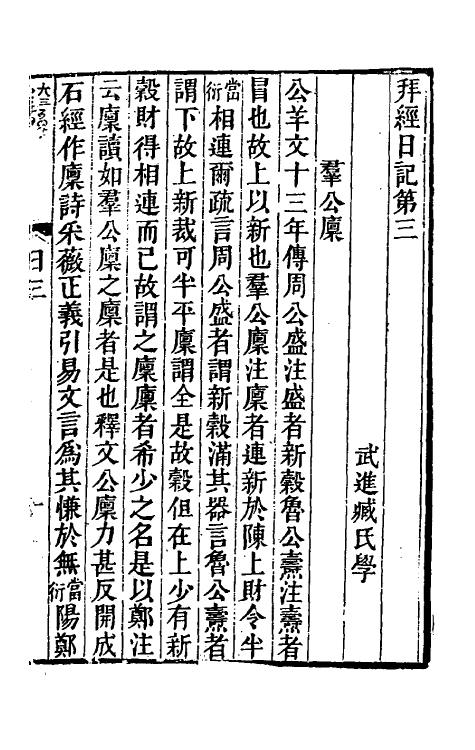 拜經日記第三
武進臧氏學
羣公廩
公羊文十三年傳周公盛注盛者新穀魯公燾注燾者
冒也故上以新也羣公廩注廩者連新於陳上財令半
當衍相連爾疏言周公盛者謂新穀滿其器言魯公燾者
謂下故上新裁可半平廩謂全是故穀但在上少有新
穀財得相連而已故謂之廩廩者希少之名是以鄭注
云廩讀如羣公廩之廩者是也釋文公廩力甚反開成
石經作廩詩采薇正義引易文言爲其慊於無當衍陽鄭
日三
一